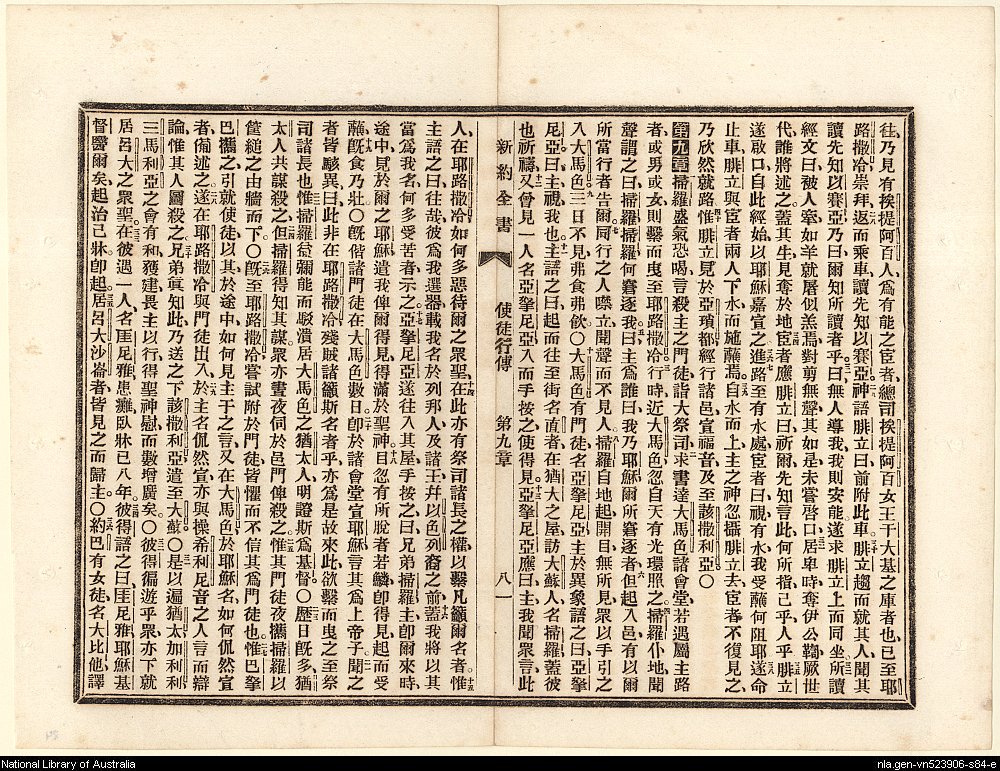 往乃見有挨提阿百人爲有能之宦者總司挨提阿百女王干大基之庫者也已至耶
路撒冷崇拜返而乘車讀先知以賽亞神語腓立曰前附此車腓立趨而就其人聞其
讀先知以賽亞乃曰爾知所讀者乎曰無人導我我則安能遂求腓立上而同坐所讀
經文曰彼人宰如羊就屠似羔焉對剪無聲其如是未嘗啓口居卑時奪伊公鞫厥世
代誰將述之蓋其生見奪於地宦者應腓立曰祈爾先知言此何所指己乎人乎腓立
遂啟口自此經始以耶穌嘉宣之進路至有水處宦者曰視有水我受蘸何阻耶遂命
止車腓立與宦者兩人下水而施蘸焉自水而上主之神忽攝腓立去宦者不復見之
乃欣然就路惟腓立見於亞瑣都經行諸邑宣福音及至該撒利亞〇
第九章掃羅盛氣恐喝言殺主之門徒詣大祭司求書達大馬色諸會堂若遇屬主路
者或男或女則繫而曳至耶路撒冷行時近大馬色忽自天有光環照之掃羅仆地聞
聲謂之曰掃羅掃羅何窘逐我曰主爲誰曰我乃耶穌爾所窘逐者但起入邑有以爾
所當行者告爾同行之人㗫立聞聲而不見人掃羅自地起開目無所見眾以手引之
入大馬色三日不見弗食弗飲〇大馬色有門徒名亞拏尼亞主於異象語之曰亞拏
尼亞曰主視我也主語之曰起而往至街名直者在猶大之屋訪大蘇人名掃羅蓋彼
也祈禱又曾見一人名亞拏尼亞入而手按之使得見亞拏尼亞應曰主我聞眾言此
新約全書 使徒行傳 第九章 八一
人在耶路撒冷如何多惡待爾之眾聖在此亦有祭司諸長之權以繫凡籲爾名者惟
主語之曰往哉彼爲我選器載我名於列邦人及諸王幷以色列裔之前蓋我將以其
當爲我名何多受苦者示之亞拏尼亞遂往入其屋手按之曰兄弟掃羅主卽爾來時
途中見於爾之耶穌遣我俾爾得見得滿於聖神目忽有所脫者若鱗卽得見起而受
蘸旣食乃壯〇旣偕諸門徒在大馬色數日卽於諸會堂宣耶穌言其爲上帝子聞之
者皆駭異曰此非在耶路撒冷殘賊諸籲斯名者乎亦爲是故來此欲繫而曳之至祭
司諸長也惟掃羅益彌能而駁潰居大馬色之猶太人明證斯爲基督〇歷日旣多猶
太人共謀殺之但掃羅得知其謀眾亦晝夜伺於邑門俾殺之惟其門徒夜攜掃羅以
筐縋之由牆而下〇旣至耶路撒冷嘗試附於門徒皆懼而不信其爲門徒也惟巴拏
巴攜之引就使徒以其於途中如何見主于之言又在大馬色於耶穌名如何侃然宣
者備述之遂在耶路撒冷與門徒出入於主名侃然宣亦與操希利尼音之人言而辯
論惟其人圖殺之兄弟眞知此乃送之下該撒利亞遣至大蘇〇是以遍猶太加利利
三馬利亞之會有和獲建畏主以行得聖神慰而數增廣矣〇彼得徧遊乎眾亦下就
居呂大之眾聖在彼遇一人名厓尼雅患癱臥牀已八年彼得語之曰厓尼雅耶穌基
督醫爾矣起治己牀卽起居呂大沙崙者皆見之而歸主〇約巴有女徒名大比他譯
National Library of Australia
nla.gen-vn523906-s84-e